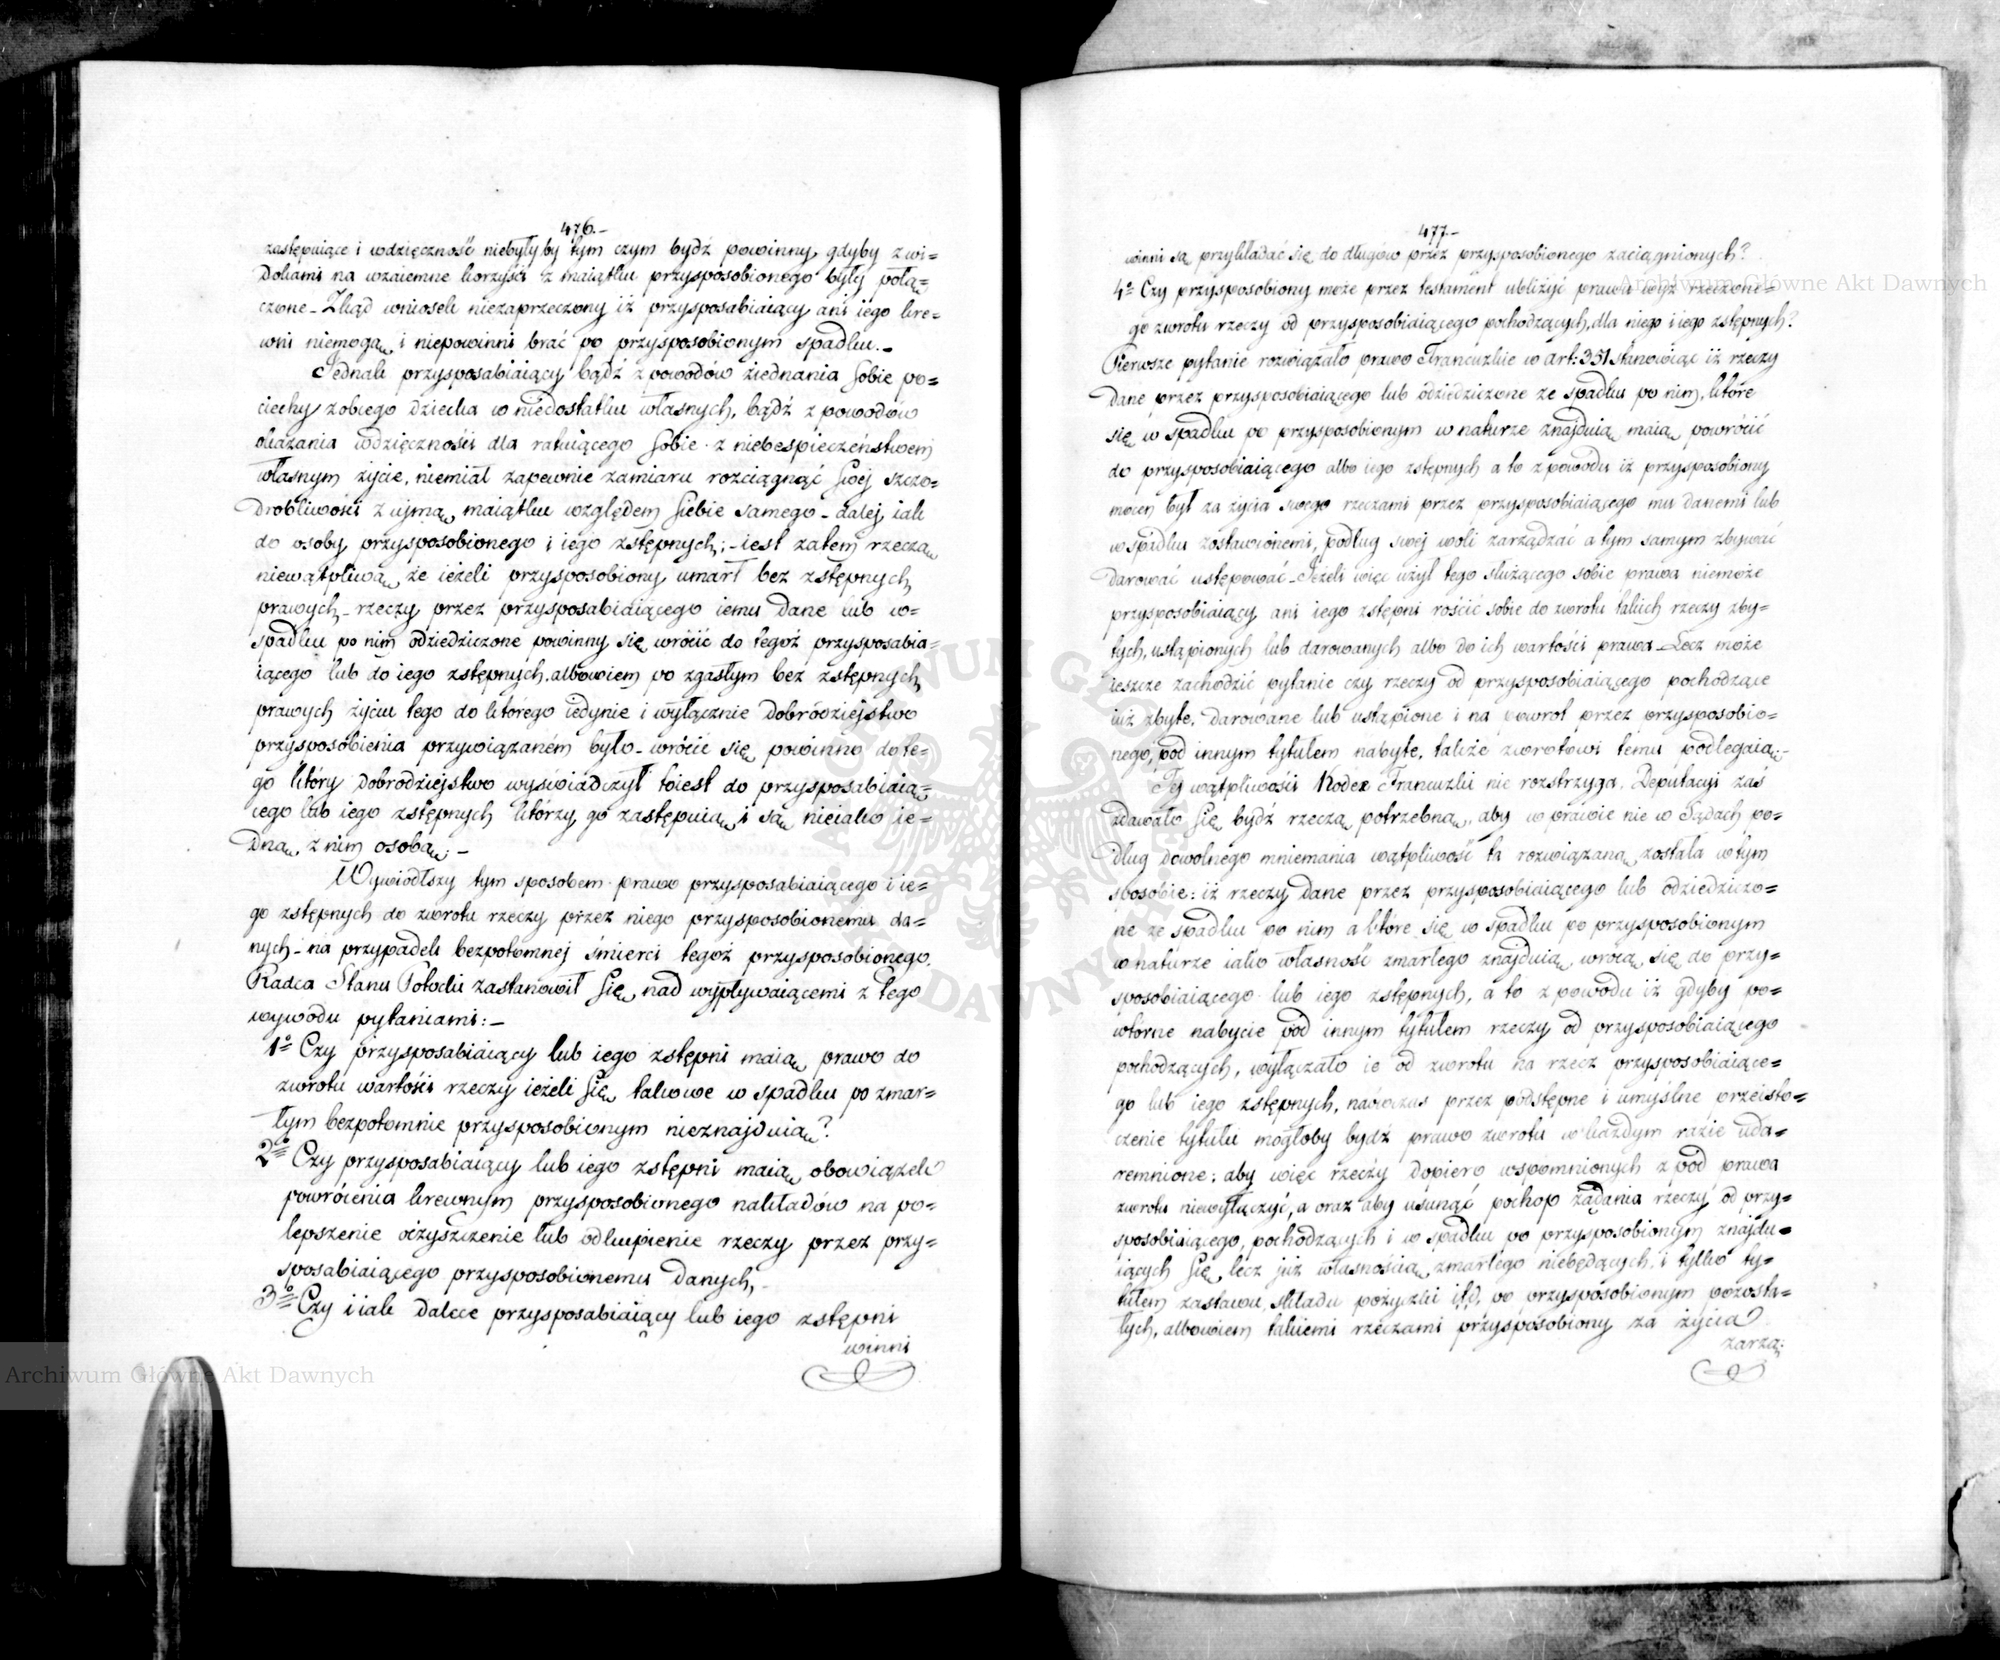 476.-
zastępuiące i wdzięczność niebyłyby tym czym bydź powinny, gdyby z wi=
dokami na wzaiemne korzyści z maiątku przysposobionego były połą=
czone_ Zkąd wniosek niezaprzeczony iż przysposabiaiący ani iego kre=
wni niemogą i niepowinni brać po przysposobionym spadku._
Jednak przysposabiaiący bądź z powodów ziednania sobie po=
ciechy z obcego dziecka w niedostatku własnych, bądź z powodów
okazania wdzięczności dla ratuiącego sobie z niebespieczeństwem
własnym życie, niemiał zapewnie zamiaru rozciągnąć swej szczo=
drobliwości z ujmą maiątku względem siebie samego_ dalej iak
do osoby przysposobionego i iego zstępnych;_ iest zatem rzeczą
niewątpliwą że ieżeli przysposobiony umarł bez zstępnych
prawych_ rzeczy przez przysposabiaiącego iemu dane lub w=
spadku po nim odziedziczone powinny się wrócić do tegoż przysposabia=
iącego lub do iego zstępnych, albowiem po zgasłym bez zstępnych
prawych życiu tego do którego iedynie i wyłącznie dobrodziejstwo
przysposobienia przywiązaném było_ wrócić się powinno do te=
go który dobrodziejstwo wyświadczył to iest do przysposabiaią=
cego lub iego zstępnych którzy go zastępuią i są nieiako ie=
dną z nim osobą;_
Wywiódłszy tym sposobem prawo przysposabiaiącego i ie=
go zstępnych do zwrotu rzeczy przez niego przysposobionemu da=
nych_ na przypadek bezpotomnej śmierci tegoż przysposobionego,
Radca Stanu Potocki zastanowił się nad wypływaiącemi z tego
wywodu pytaniami:_
1º Czy przysposabiaiący lub iego zstępni maią prawo do
zwrotu wartości rzeczy ieżeli się takowe w spadku po zmar=
łym bezpotomnie przysposobionym nieznajduią?
2º Czy przysposabiaiący lub iego zstępni maią obowiązek
powrócenia krewnym przysposobionego nakładów na po=
lepszenie oczyszczenie lub odkupienie rzeczy przez przy=
sposabiaiącego przysposobionemu danych,_
3º Czy i iak dalece przysposabiaiący lub iego zstępni
winni
477.-
winni są przykładać się do długów przez przysposobionego zaciągnionych?
4º Czy przysposobiony może przez testament ubliżyć prawu wyż rzeczone=
go zwrotu rzeczy od przysposobiaiącego pochodzących, dla niego i iego zstępnych?
Pierwsze pytanie rozwiązało prawo Francuzkie w art: 351 stanowiąc iż rzeczy
dane przez przysposobiaiącego lub odziedziczone ze spadku po nim, które
się w spadku po przysposobionym w naturze znajduią maią powrócić
do przysposobiaiącego albo iego zstępnych a to z powodu iż przysposobiony
mocen był za życia swego rzeczami przez przysposobiaiącego mu danemi lub
w spadku zostawionemi, podług swej woli zarządzać a tym samym zbywać
darować ustępować_ Jeżeli więc użył tego służącego sobie prawa niemoże
przysposobiaiący ani iego zstępni rościć sobie do zwrotu takich rzeczy zby=
tych, ustąpionych lub darowanych albo do ich wartości prawa_ Lecz może
ieszcze zachodzić pytanie czy rzeczy od przysposobiaiącego pochodzące
iuż zbyte, darowane lub ustąpione i na powrot przez przysposobio=
nego, pod innym tytułem nabyte, także zwrotowi temu podlegaią;_
Tej wątpliwości Kodex Francuzki nie rozstrzyga. Deputacyi zaś
zdawało się bydź rzeczą potrzebną, aby w prawie nie w Sądach po=
dług dowolnego mniemania wątpliwość ta rozwiązaną została w tym
sposobie: iż rzeczy dane przez przysposobiaiącego lub odziedziczo=
ne ze spadku po nim a które się w spadku po przysposobionym
w naturze iako własność zmarłego znajduią, wrócą się do przy=
sposobiaiącego lub iego zstępnych, a to z powodu iż gdyby po=
wtórne nabycie pod innym tytułem rzeczy od przysposobiaiącego
pochodzących, wyłączało ie od zwrotu na rzecz przysposobiaiące=
go lub iego zstępnych, naówczas przez podstępne i umyślne przeisto=
czenie tytułu mogłoby bydź prawo zwrotu w każdym razie uda=
remnione; aby więc rzeczy dopiero wspomnionych z pod prawa
zwrotu niewyłączyć, a oraz aby usunąć pochop żądania rzeczy od przy=
sposobiaiącego, pochodzących i w spadku po przysposobionym znajdu=
iących się, lecz już własnością zmarłego niebędących, i tylko ty=
tułem zastawu, składu pożyczki i.t.d. po przysposobionym pozosta=
łych, albowiem takiemi rzeczami przysposobiony za życia
zarzą:
Archiwum Główne Akt Dawnych
Archiwum Główne Akt Dawnych
ARCHIWUM GŁÓWNE AKT DAWNYCH